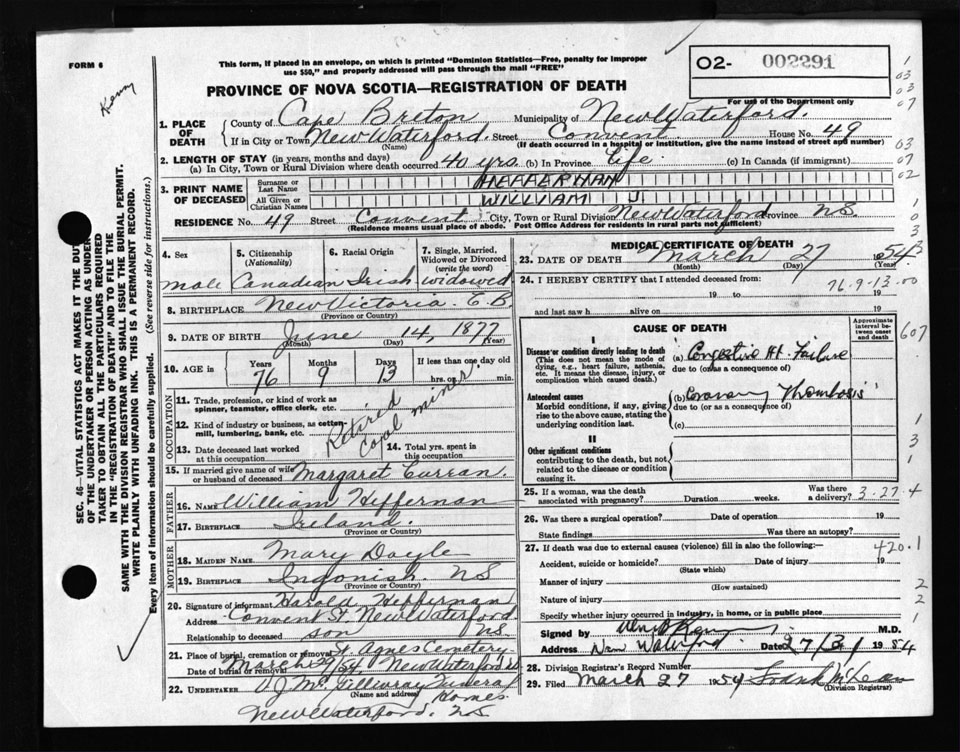 FORM 6
This form, if placed in an envelope, on which is printed "Dominion Statistics—Free, penalty for improper use $50," and properly addressed will pass through the mail "FREE"
O2- 002291
For use of the Department only
PROVINCE OF NOVA SCOTIA—REGISTRATION OF DEATH
Kenny
1. PLACE OF DEATH
County of Cape Breton Municipality of New Waterford.
If in City or Town New Waterford. Street Convent House No. 49
(Name) (If death occurred in a hospital or institution, give the name instead of street and number)
2. LENGTH OF STAY (in years, months and days)
(a) In City, Town or Rural Division where death occurred 40 yrs. (b) In Province life. (c) In Canada (if immigrant)
3. PRINT NAME OF DECEASED
Surname or Last Name HEFFERMAN
All Given or Christian Names WILLIAM J
RESIDENCE No. 49 Street Convent City, Town or Rural Division New Waterford Province NS.
(Residence means usual place of abode. Post Office Address for residents in rural parts not sufficient)
4. Sex
5. Citizenship (Nationality)
6. Racial Origin
7. Single, Married, Widowed or Divorced (write the word)
male Canadian Irish widowed
8. BIRTHPLACE New Victoria. C.B
(Province or Country)
9. DATE OF BIRTH June 14, 1877
(Month) (Day) (Year)
10. AGE in Years Months Days If less than one day old
76 9 13 hrs. or min.
OCCUPATION
11. Trade, profession, or kind of work as spinner, teamster, office clerk, etc.
12. Kind of industry or business, as cotton-mill, lumbering, bank, etc.
Retired coal miner
13. Date deceased last worked at this occupation
14. Total yrs. spent in this occupation
15. If married give name of wife or husband of deceased Margaret Curran.
FATHER
16. NAME William Heffernan
17. BIRTHPLACE Ireland.
(Province or Country)
MOTHER
18. MAIDEN NAME Mary Doyle
19. BIRTHPLACE Ingonish. NS
(Province or Country)
20. Signature of informant Harold Heffernan
Address Convent St. New Waterford
Relationship to deceased son NS.
21. Place of burial, cremation or removal St. Agnes Cemetery
Date of burial or removal March 29/54, New Waterford
22. UNDERTAKER A J McGillivray Funeral Homes
(Name and address)
New Waterford. NS
MEDICAL CERTIFICATE OF DEATH
23. DATE OF DEATH March 27 1954
(Month) (Day) (Year)
24. I HEREBY CERTIFY that I attended deceased from:
76-9-13-00
19 to 19
and last saw h alive on 19
CAUSE OF DEATH
Approximate interval between onset and death
I
Disease or condition directly leading to death (a) Congestive Ht. Failure
(This does not mean the mode of dying, e.g., heart failure, asthenia, etc. It means the disease, injury, or complication which caused death.)
due to (or as a consequence of)
Antecedent causes (b) Coronary Thrombosis
Morbid conditions, if any, giving rise to the above cause, stating the underlying condition last.
due to (or as a consequence of)
(c)
II
Other significant conditions
contributing to the death, but not related to the disease or condition causing it.
25. If a woman, was the death associated with pregnancy? Duration weeks. Was there a delivery? 3-27-4
26. Was there a surgical operation? Date of operation 19
State findings Was there an autopsy?
27. If death was due to external causes (violence) fill in also the following:— 420.1
Accident, suicide or homicide? Date of injury 19
(State which)
Manner of injury
(How sustained)
Nature of injury
Specify whether injury occurred in industry, in home, or in public place
Signed by M.D.
Address New Waterford Date 27/3/ 1954
28. Division Registrar's Record Number
29. Filed March 27 1954 Frank McLean
(Division Registrar)
1
03
03
07
03
07
02
1
0
3
3
607
1
3
1
2
2
1
SEC. 46—VITAL STATISTICS ACT MAKES IT THE DUTY
OF THE UNDERTAKER OR PERSON ACTING AS UNDER-
TAKER TO OBTAIN ALL THE PARTICULARS REQUIRED
IN THE "REGISTRATION OF DEATH" AND TO FILE THE
SAME WITH THE DIVISION REGISTRAR WHO SHALL ISSUE THE BURIAL PERMIT.
WRITE PLAINLY WITH UNFADING INK. THIS IS A PERMANENT RECORD.
Every item of information should be carefully supplied. (See reverse side for instructions.)